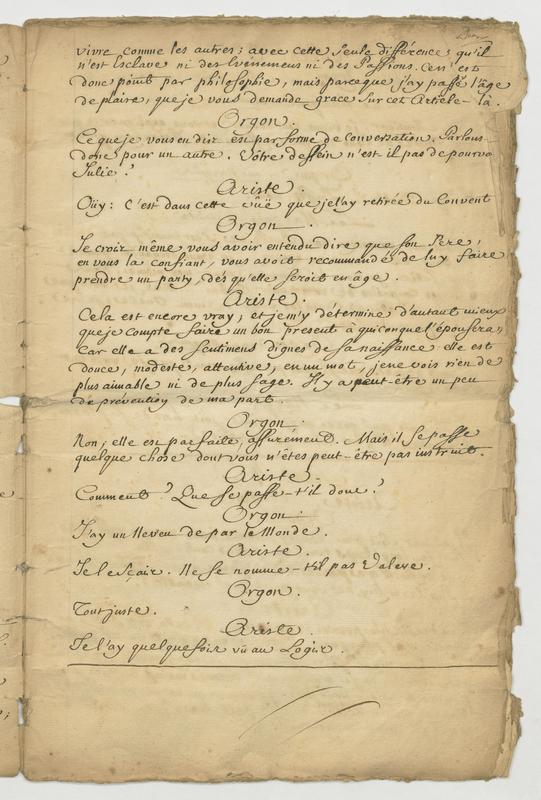 vivre comme les autres; avec cette seule différence, qu'il
n'est Esclave ni des Evénemens ni des Passions. Ce n'est
donc point par philosophie, mais parceque j'ay passé l'âge
de plaire, que je vous demande grace sur cet Article-là.
Orgon.
Ce que je vous en dis est par forme de Conversation. Parlons
donc pour un autre. Votre dessein n'est-il pas de pourvoir
Julie?
Ariste.
Oüy: C'est dans cette vûë que je l'ay retirée du Convent
Orgon.
Je crois même vous avoir entendu dire que son Pere,
en vous la confiant, vous avoit recommandé de luy faire
prendre un party, dès qu'elle seroit en âge.
Ariste.
Cela est encore vray, et je m'y détermine d'autant mieux
que je compte faire un bon présent à quiconque l'épousera;
Car elle a des Sentimens dignes de sa naissance elle est
douce, modeste, attentive, en un mot, je ne vois rien de
plus aimable ni de plus sage. Il y a peut-être un peu
de prévention de ma part.
Orgon.
Non; elle est parfaite, assurément. Mais il se passe
quelque chose dont vous n'êtes peut-être pas instruit.
Ariste.
Comment? Que se passe-t'il donc?
Orgon.
J'ay un Neveu de par le Monde.
Ariste.
Je le sçais. Ne se nomme-t-il pas Valere.
Orgon.
Tout juste.
Ariste.
Je l'ay quelquefois vû au Logis.